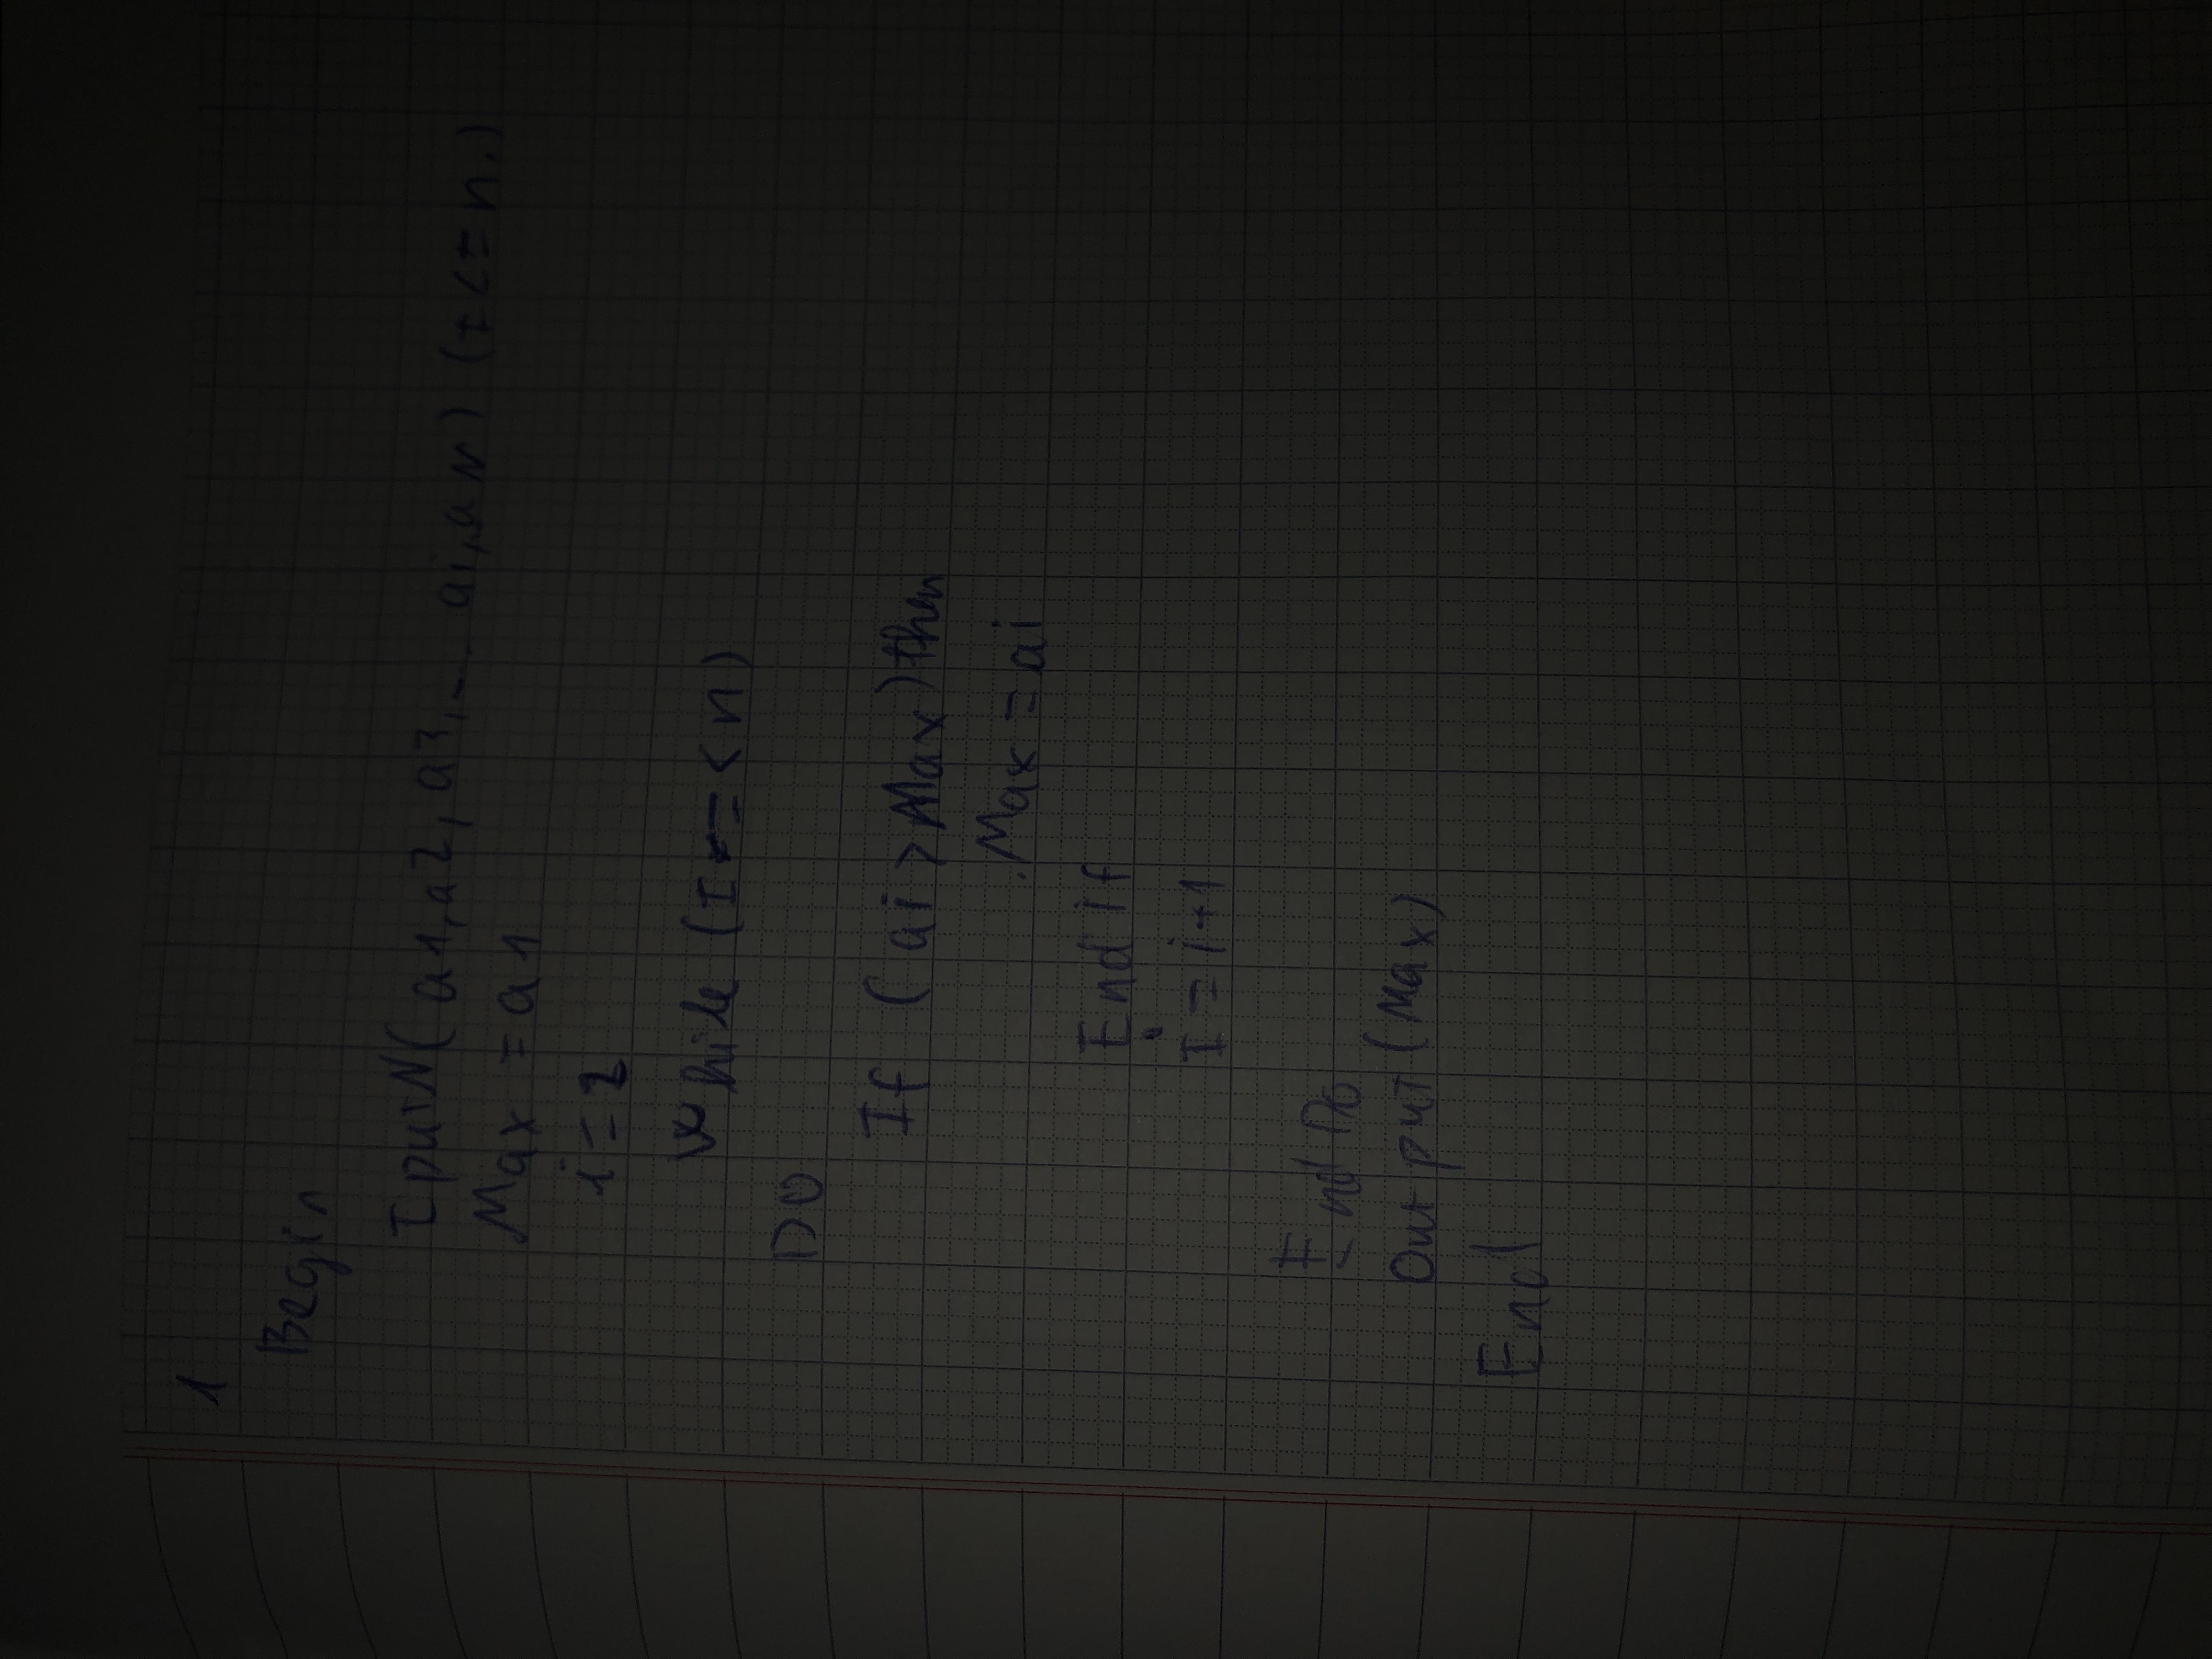 1
Begin
IputN(a1,a2,a3,... ai,aN) (I<=n.)
Max = a1
i=2
While (I=<n)
DO
If (ai>Max)then
Max =ai
End if
I = i+1
End Do
Output(Max)
End